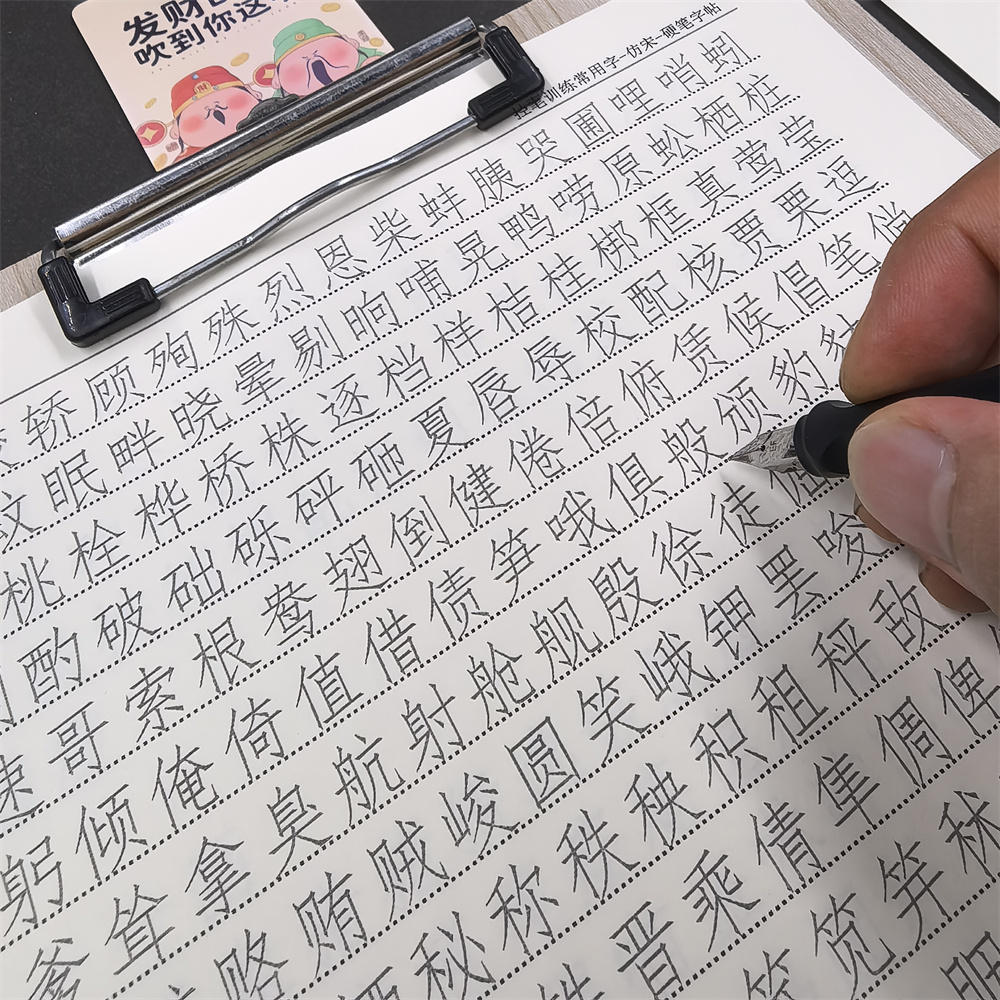 发财
吹到你这
控笔训练常用字-仿宋-硬笔字帖
轿顾殉殊烈恩柴蚌胰哭圃哩哨蚓
蚊眠畔晓晕剔晌哺晃鸭唠原蚣栖桩
桃栓桦桥株逐档样桔桂梆框真莺莹
酌破础砾砰砸夏唇辱校配核贾栗逗
速哥索根鸯翅倒健倦倍俯赁候倡笔倘
躬倾俺倚值借债笋哦俱般颁豹
爹耸拿臭航射舱舰殷徐徒
赂贿贼峻圆笑峨钾罢唆
秘称秩秧积租秤敌
晋乘倩隼倜俾
笕笄秫